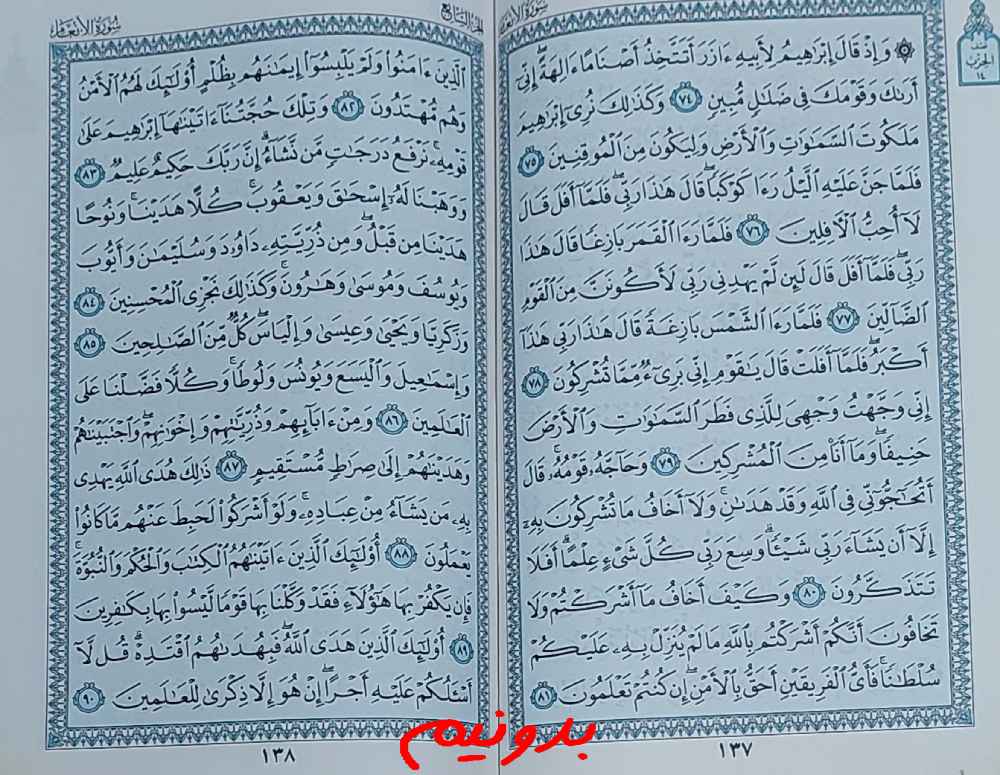 الجزء السابع
سورة الأنعام
نصف
الحزب
١٤
۞ وَإِذْ قَالَ إِبْرَٰهِيمُ لِأَبِيهِ ءَازَرَ أَتَتَّخِذُ أَصْنَامًا ءَالِهَةً ۖ إِنِّىٓ
أَرَىٰكَ وَقَوْمَكَ فِى ضَلَٰلٍ مُّبِينٍ ٧٤ وَكَذَٰلِكَ نُرِىٓ إِبْرَٰهِيمَ
مَلَكُوتَ ٱلسَّمَٰوَٰتِ وَٱلْأَرْضِ وَلِيَكُونَ مِنَ ٱلْمُوقِنِينَ ٧٥
فَلَمَّا جَنَّ عَلَيْهِ ٱلَّيْلُ رَءَا كَوْكَبًا ۖ قَالَ هَٰذَا رَبِّى ۖ فَلَمَّآ أَفَلَ قَالَ
لَآ أُحِبُّ ٱلْءَافِلِينَ ٧٦ فَلَمَّا رَءَا ٱلْقَمَرَ بَازِغًا قَالَ هَٰذَا
رَبِّى ۖ فَلَمَّآ أَفَلَ قَالَ لَئِن لَّمْ يَهْدِنِى رَبِّى لَأَكُونَنَّ مِنَ ٱلْقَوْمِ
ٱلضَّآلِّينَ ٧٧ فَلَمَّا رَءَا ٱلشَّمْسَ بَازِغَةً قَالَ هَٰذَا رَبِّى هَٰذَآ
أَكْبَرُ ۖ فَلَمَّآ أَفَلَتْ قَالَ يَٰقَوْمِ إِنِّى بَرِىٓءٌ مِّمَّا تُشْرِكُونَ ٧٨
إِنِّى وَجَّهْتُ وَجْهِىَ لِلَّذِى فَطَرَ ٱلسَّمَٰوَٰتِ وَٱلْأَرْضَ
حَنِيفًا ۖ وَمَآ أَنَا۠ مِنَ ٱلْمُشْرِكِينَ ٧٩ وَحَآجَّهُۥ قَوْمُهُۥ ۚ قَالَ
أَتُحَٰٓجُّوٓنِّى فِى ٱللَّهِ وَقَدْ هَدَىٰنِ ۚ وَلَآ أَخَافُ مَا تُشْرِكُونَ بِهِۦٓ
إِلَّآ أَن يَشَآءَ رَبِّى شَيْـًٔا ۗ وَسِعَ رَبِّى كُلَّ شَىْءٍ عِلْمًا ۗ أَفَلَا
تَتَذَكَّرُونَ ٨٠ وَكَيْفَ أَخَافُ مَآ أَشْرَكْتُمْ وَلَا
تَخَافُونَ أَنَّكُمْ أَشْرَكْتُم بِٱللَّهِ مَا لَمْ يُنَزِّلْ بِهِۦ عَلَيْكُمْ
سُلْطَٰنًا ۚ فَأَىُّ ٱلْفَرِيقَيْنِ أَحَقُّ بِٱلْأَمْنِ ۖ إِن كُنتُمْ تَعْلَمُونَ ٨١
١٣٧
ٱلَّذِينَ ءَامَنُوا۟ وَلَمْ يَلْبِسُوٓا۟ إِيمَٰنَهُم بِظُلْمٍ أُو۟لَٰٓئِكَ لَهُمُ ٱلْأَمْنُ
وَهُم مُّهْتَدُونَ ٨٢ وَتِلْكَ حُجَّتُنَآ ءَاتَيْنَٰهَآ إِبْرَٰهِيمَ عَلَىٰ
قَوْمِهِۦ ۚ نَرْفَعُ دَرَجَٰتٍ مَّن نَّشَآءُ ۗ إِنَّ رَبَّكَ حَكِيمٌ عَلِيمٌ ٨٣
وَوَهَبْنَا لَهُۥٓ إِسْحَٰقَ وَيَعْقُوبَ ۚ كُلًّا هَدَيْنَا ۚ وَنُوحًا
هَدَيْنَا مِن قَبْلُ ۖ وَمِن ذُرِّيَّتِهِۦ دَاوُۥدَ وَسُلَيْمَٰنَ وَأَيُّوبَ
وَيُوسُفَ وَمُوسَىٰ وَهَٰرُونَ ۚ وَكَذَٰلِكَ نَجْزِى ٱلْمُحْسِنِينَ ٨٤
وَزَكَرِيَّا وَيَحْيَىٰ وَعِيسَىٰ وَإِلْيَاسَ ۖ كُلٌّ مِّنَ ٱلصَّٰلِحِينَ ٨٥
وَإِسْمَٰعِيلَ وَٱلْيَسَعَ وَيُونُسَ وَلُوطًا ۚ وَكُلًّا فَضَّلْنَا عَلَى
ٱلْعَٰلَمِينَ ٨٦ وَمِنْ ءَابَآئِهِمْ وَذُرِّيَّٰتِهِمْ وَإِخْوَٰنِهِمْ ۖ وَٱجْتَبَيْنَٰهُمْ
وَهَدَيْنَٰهُمْ إِلَىٰ صِرَٰطٍ مُّسْتَقِيمٍ ٨٧ ذَٰلِكَ هُدَى ٱللَّهِ يَهْدِى
بِهِۦ مَن يَشَآءُ مِنْ عِبَادِهِۦ ۚ وَلَوْ أَشْرَكُوا۟ لَحَبِطَ عَنْهُم مَّا كَانُوا۟
يَعْمَلُونَ ٨٨ أُو۟لَٰٓئِكَ ٱلَّذِينَ ءَاتَيْنَٰهُمُ ٱلْكِتَٰبَ وَٱلْحُكْمَ وَٱلنُّبُوَّةَ ۚ
فَإِن يَكْفُرْ بِهَا هَٰٓؤُلَآءِ فَقَدْ وَكَّلْنَا بِهَا قَوْمًا لَّيْسُوا۟ بِهَا بِكَٰفِرِينَ
٨٩ أُو۟لَٰٓئِكَ ٱلَّذِينَ هَدَى ٱللَّهُ ۖ فَبِهُدَىٰهُمُ ٱقْتَدِهْ ۗ قُل لَّآ
أَسْـَٔلُكُمْ عَلَيْهِ أَجْرًا ۖ إِنْ هُوَ إِلَّا ذِكْرَىٰ لِلْعَٰلَمِينَ ٩٠
١٣٨
بدونیم